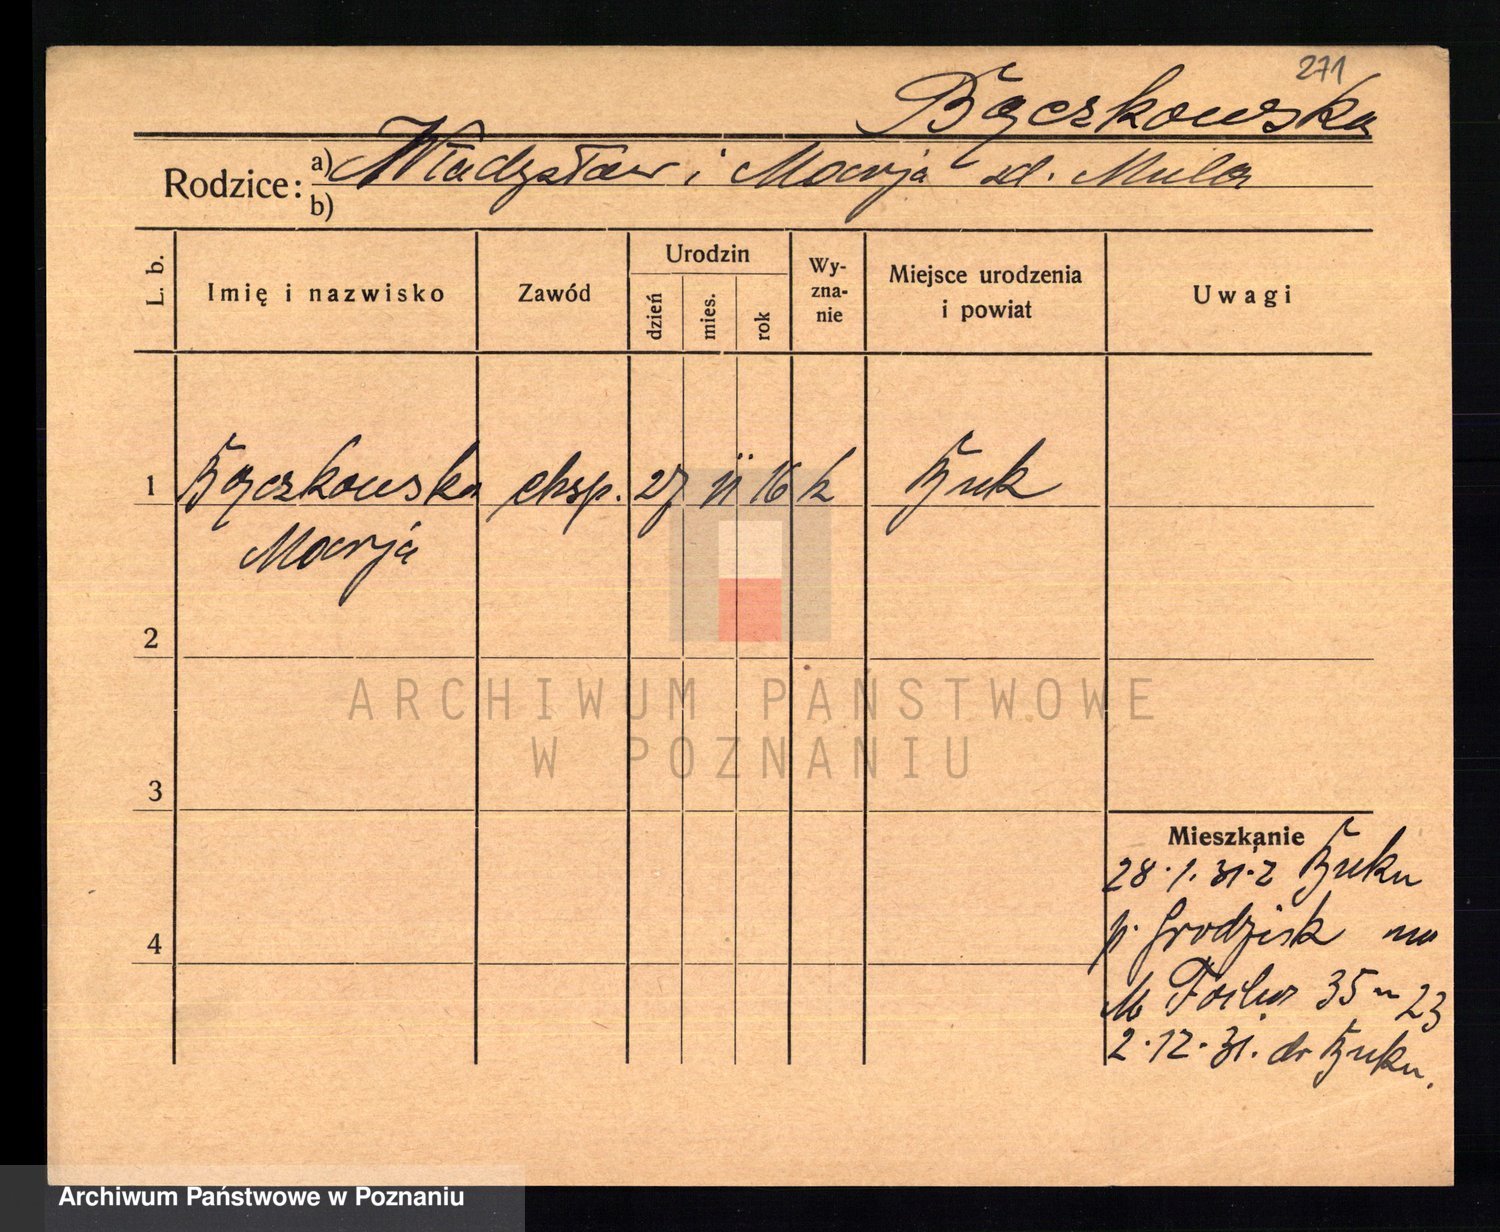 271
Bączkowska
Rodzice: a) Władysław i Marja zd. Mula
b)
L. b.
Imię i nazwisko
Zawód
Urodzin
dzień
mies.
rok
Wy-
zna-
nie
Miejsce urodzenia
i powiat
Uwagi
1 Bączkowska eksp. 27 II 16 k Buk
Marja
2
3
4
Mieszkanie
28.1.31. z Buku
p. Grodzisk
M 35 m 23
2.12.31. do Buku.
ARCHIWUM PAŃSTWOWE
W POZNANIU
Archiwum Państwowe w Poznaniu